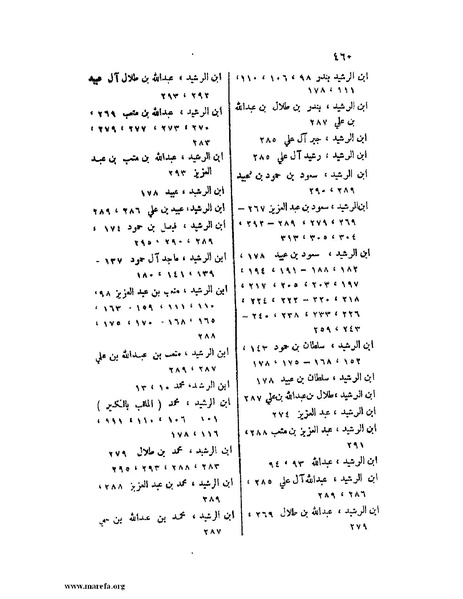 ٤٦٠
ابن الرشيد بندر ٩٨ ، ١٠٦ ، ١١٠ ،
١١١ ، ١٧٨
ابن الرشيد ، بندر بن طلال بن عبدالله
بن علي ٢٨٧
ابن الرشيد ، جبر آل علي ٢٨٥
ابن الرشيد ، رشيد آل علي ٢٨٥
ابن الرشيد ، سعود بن حمود بن عبيد
٢٨٩ ، ٢٩٠
ابن الرشيد ، سعود بن عبد العزيز ٢٦٧ –
٢٦٩ ، ٢٧٩ ، ٢٨٩ – ٢٩٢ ،
٣٠٤ ، ٣٠٥ ، ٣١٣
ابن الرشيد ، سعود بن عبيد ١٧٨ ،
١٨٢ ، ١٨٨ – ١٩١ ، ١٩٤ ،
١٩٧ ، ٢٠٣ ، ٢٠٥ ، ٢١٧ ،
٢١٨ ، ٢٢٠ – ٢٢٢ ، ٢٢٤ ،
٢٢٦ ، ٢٣٣ ، ٢٣٨ ، ٢٤٠ –
٢٤٣ ، ٢٥٩
ابن الرشيد ، سلطان بن حمود ١٤٣ ،
١٥٢ ، ١٦٨ – ١٧٥ ، ١٧٨
ابن الرشيد ، سلطان بن عبيد ١٧٨
ابن الرشيد ، طلال بن عبدالله بن علي ٢٨٧
ابن الرشيد ، عبد العزيز ٢٧٤
ابن الرشيد ، عبد العزيز بن متعب ٢٨٨ ،
٢٩١
ابن الرشيد ، عبدالله ٩٣ ، ٩٤
ابن الرشيد ، عبدالله آل علي ٢٨٥ ،
٢٨٦ ، ٢٨٩
ابن الرشيد ، عبدالله بن طلال ٢٦٩ ،
٢٧٩
ابن الرشيد ، عبدالله بن طلال آل عبيد
٢٩٢ ، ٢٩٣
ابن الرشيد ، عبدالله بن متعب ٢٦٩ ،
٢٧٠ ، ٢٧٣ ، ٢٧٧ ، ٢٧٩ ،
٢٨٣
ابن الرشيد ، عبدالله بن متعب بن عبد
العزيز ٢٩٣
ابن الرشيد ، عبيد ١٧٨
ابن الرشيد ، عبيد بن علي ٢٨٦ ، ٢٨٩
ابن الرشيد ، فيصل بن حمود ١٧٤ ،
٢٨٩ ، ٢٩٠ ، ٢٩٥
ابن الرشيد ، ماجد آل حمود ١٣٧ -
١٣٩ ، ١٤١ ، ١٨٠
ابن الرشيد ، متعب بن عبد العزيز ٩٨ ،
١١٠ ، ١١١ ، ١٥٩ - ١٦٣ ،
١٦٥ ، ١٦٨ - ١٧٠ ، ١٧٥ ،
ابن الرشيد ، متعب بن عبدالله بن علي
٢٨٧ ، ٢٨٩
ابن الرشيد ، محمد ١٠ ، ١٣
ابن الرشيد ، محمد ( الملقب بالكبير )
١٠١ ، ١٠٦ ، ١١٠ ، ١١١ ،
١١٦ ، ١٧٨
ابن الرشيد ، محمد بن طلال ٢٧٩
٢٨٣ ، ٢٨٨ ، ٢٩٣ ، ٢٩٥
ابن الرشيد ، محمد بن عبد العزيز ٢٨٨ ،
٢٨٩
ابن الرشيد ، محمد بن عبدالله بن
٢٨٧
www.marefa.org